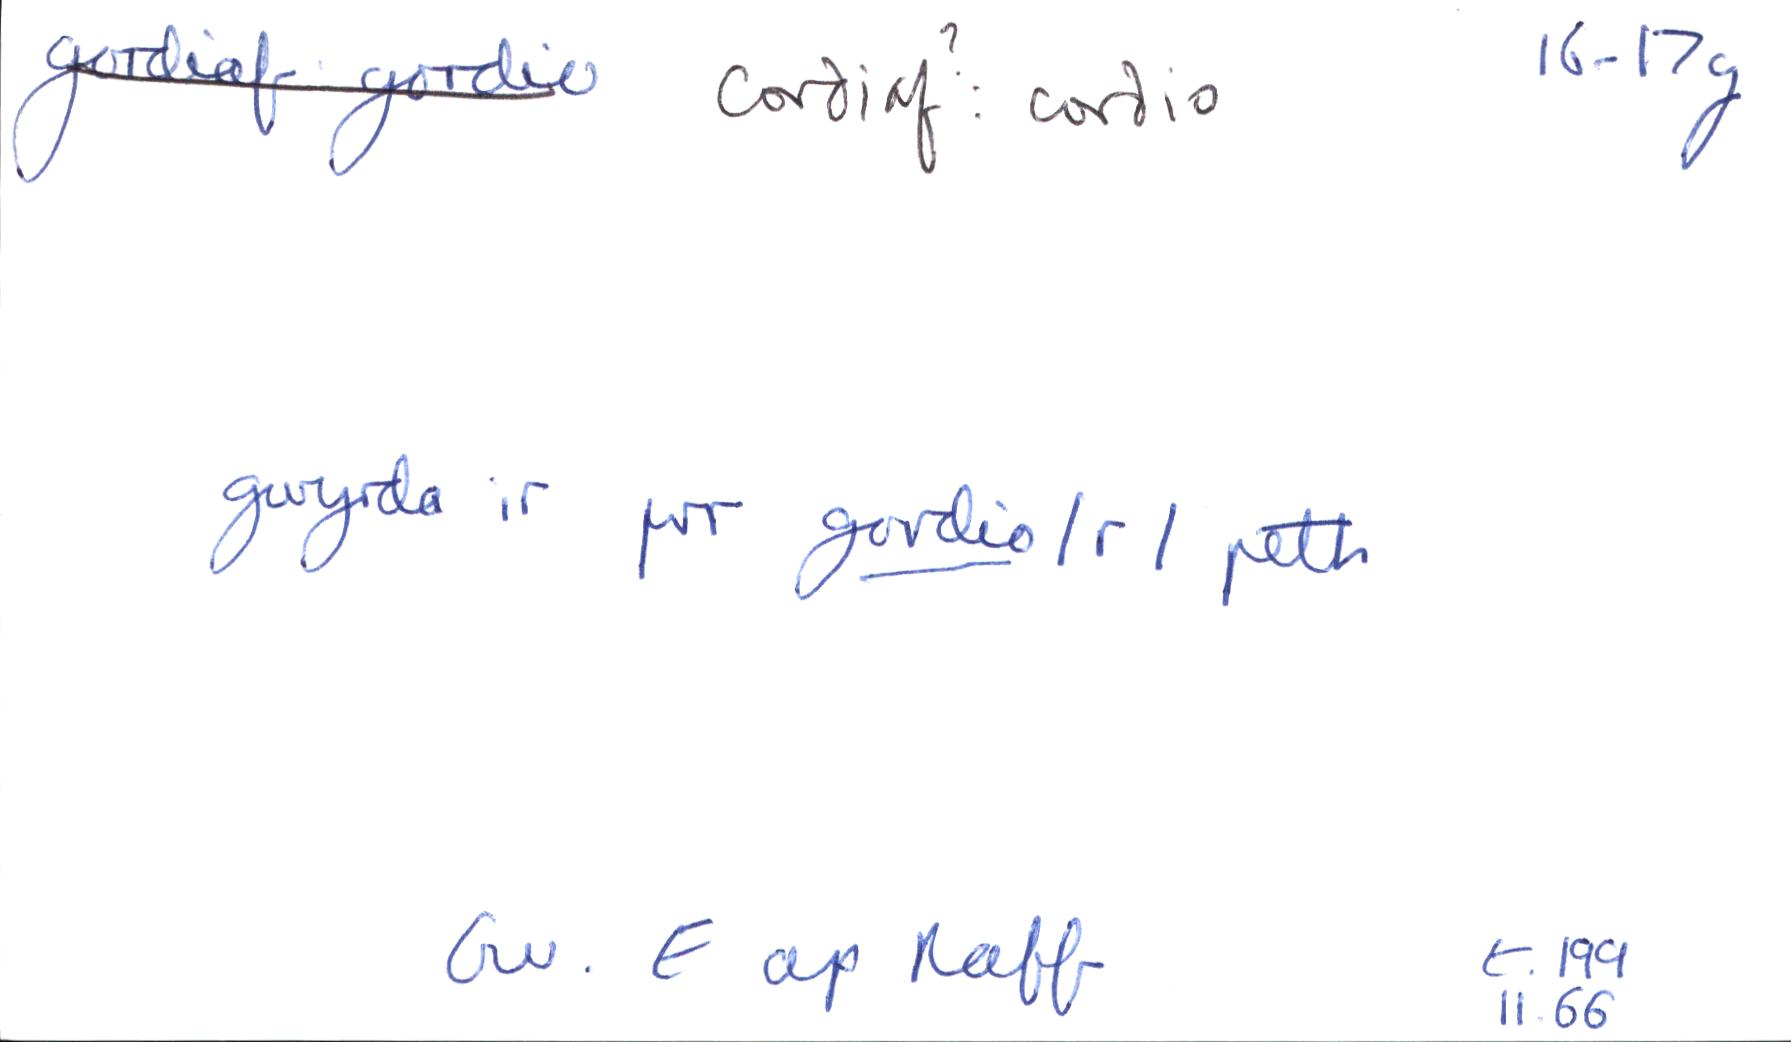 gordiaf: gordio cordiaf?: cordio 16-17g
gwyrda ir pur gordio/r/ peth
Gw. E ap Raff
E. 199
11.66